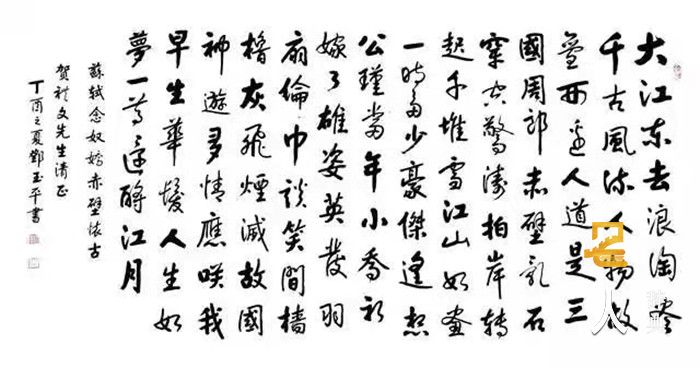 大江东去浪淘盡
千古風流人物故
壘西邊人道是三
國周郎赤壁亂石
穿空驚濤拍岸轉
起千堆雪江山如畫
一時多少豪傑遙想
公瑾當年小喬初
嫁了雄姿英發羽
扇倫巾談笑間檣
櫓灰飛煙滅故國
神遊多情應咲我
早生華髮人生如
夢一尊還酹江月
蘇軾念奴嬌赤壁懷古
賀禮文先生清正
丁酉之夏鄧玉平書